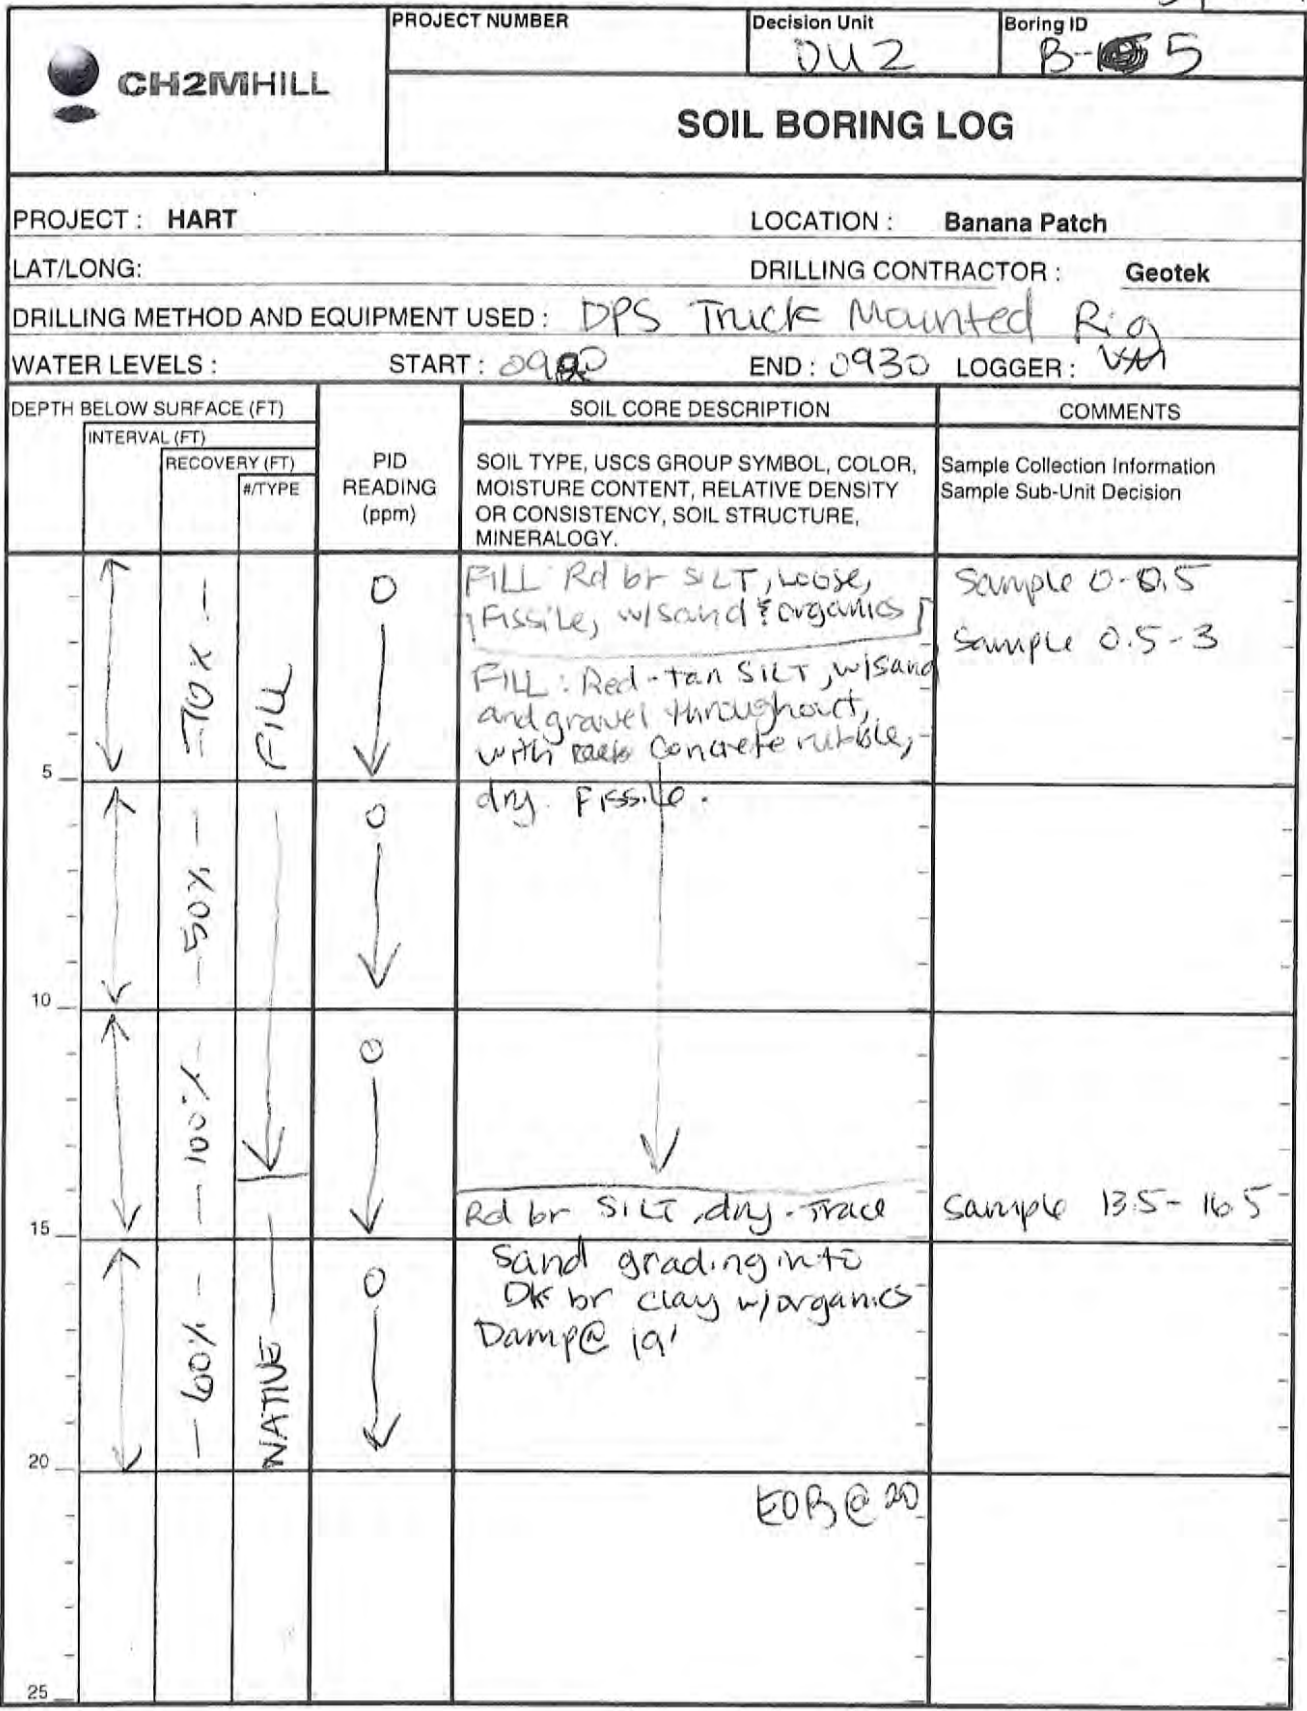 CH2MHILL
PROJECT NUMBER
Decision Unit
DU2
Boring ID
B-5
SOIL BORING LOG
PROJECT : HART
LOCATION : Banana Patch
LAT/LONG:
DRILLING CONTRACTOR : Geotek
DRILLING METHOD AND EQUIPMENT USED : DPS Truck Mounted Rig
WATER LEVELS :
START :
END : 0930
LOGGER : VM
DEPTH BELOW SURFACE (FT)
INTERVAL (FT)
RECOVERY (FT)
#/TYPE
PID
READING
(ppm)
SOIL CORE DESCRIPTION
SOIL TYPE, USCS GROUP SYMBOL, COLOR,
MOISTURE CONTENT, RELATIVE DENSITY
OR CONSISTENCY, SOIL STRUCTURE,
MINERALOGY.
COMMENTS
Sample Collection Information
Sample Sub-Unit Decision
70%
FILL
0
FILL Rd br SILT, Loose,
Fissile, w/sand & organics
Sample 0-0.5
Sample 0.5-3
FILL: Red-tan SILT, w/sand
and gravel throughout,
with concrete rubble,
5
50%
0
dry. Fissile.
10
100%
0
Rd br SILT, dry. Trace
Sample 13.5-16.5
15
60%
NATIVE
0
Sand grading into
Dk br clay w/organics
Damp@ 19'
20
EOB@20
25